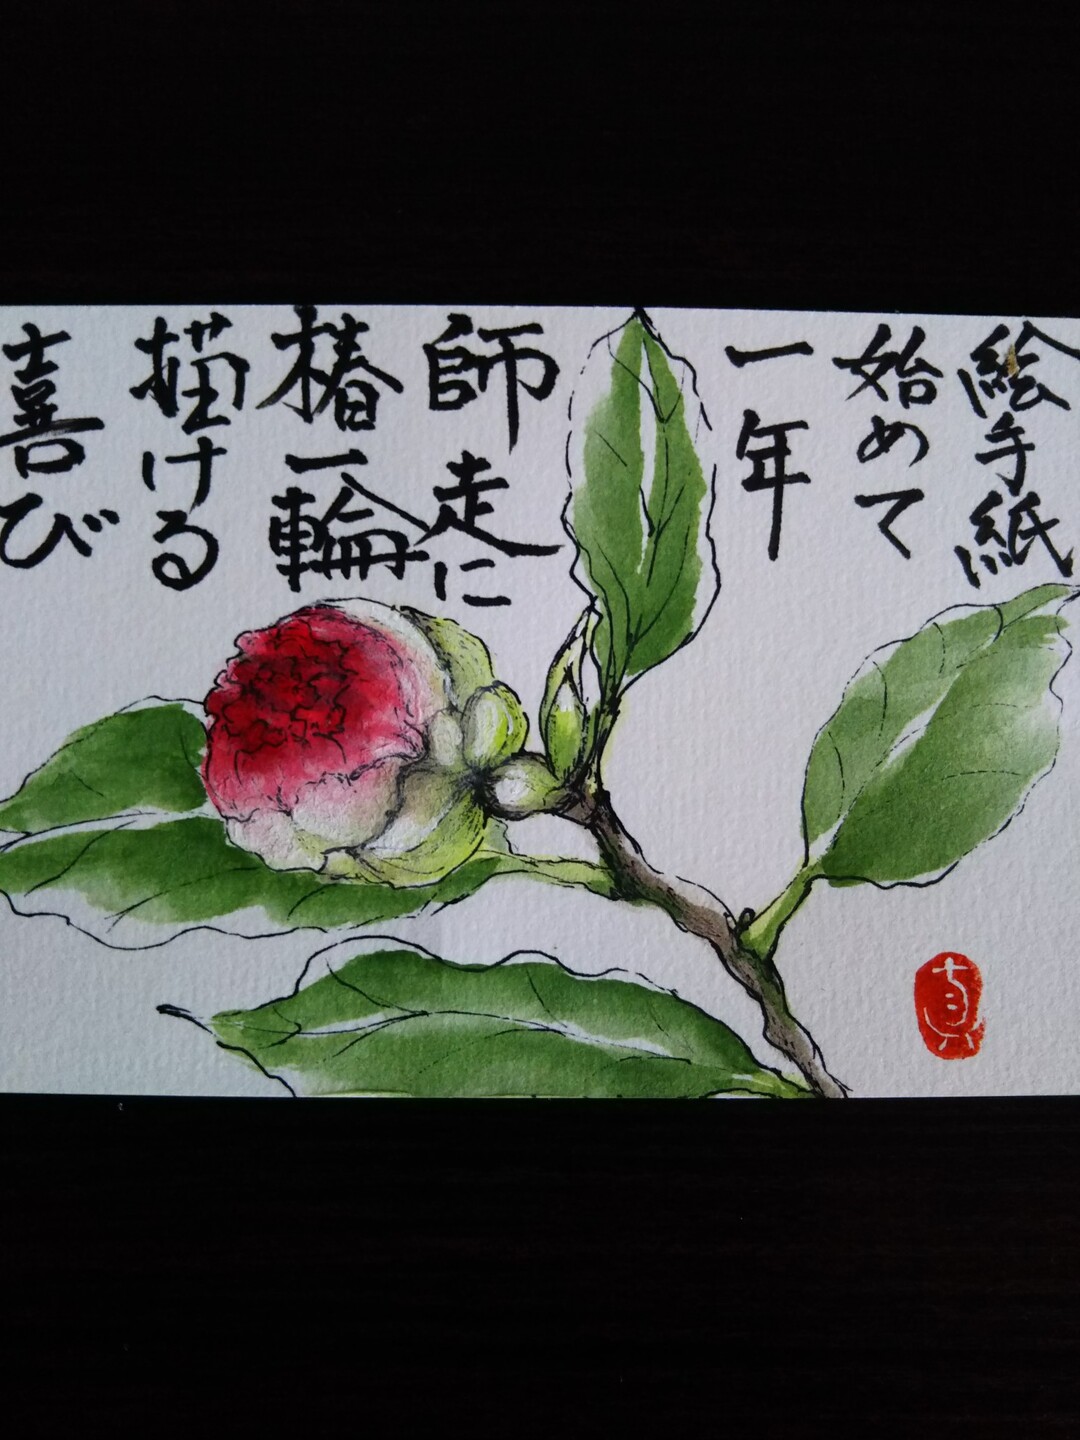 絵手紙
始めて
一年
師走に
椿一輪
描ける
喜び
真